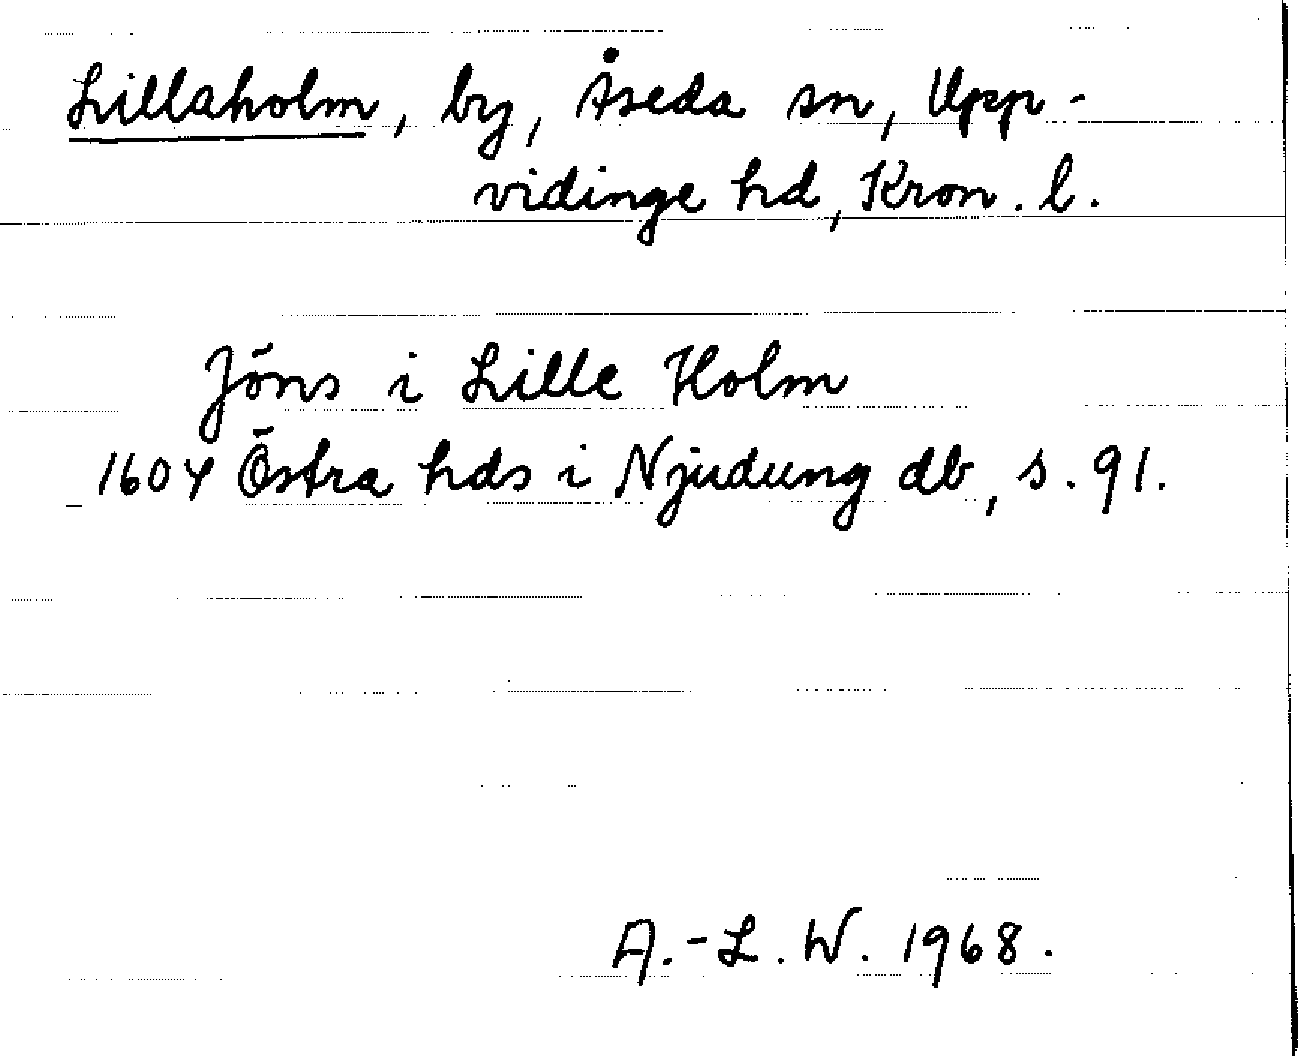 Lillaholm, by, Åseda sn, Upp-
vidinge hd, Kron. l.
Jöns i Lille Holm
1604 Östra hds i Njudung db, s. 91.
A.-L. W. 1968.